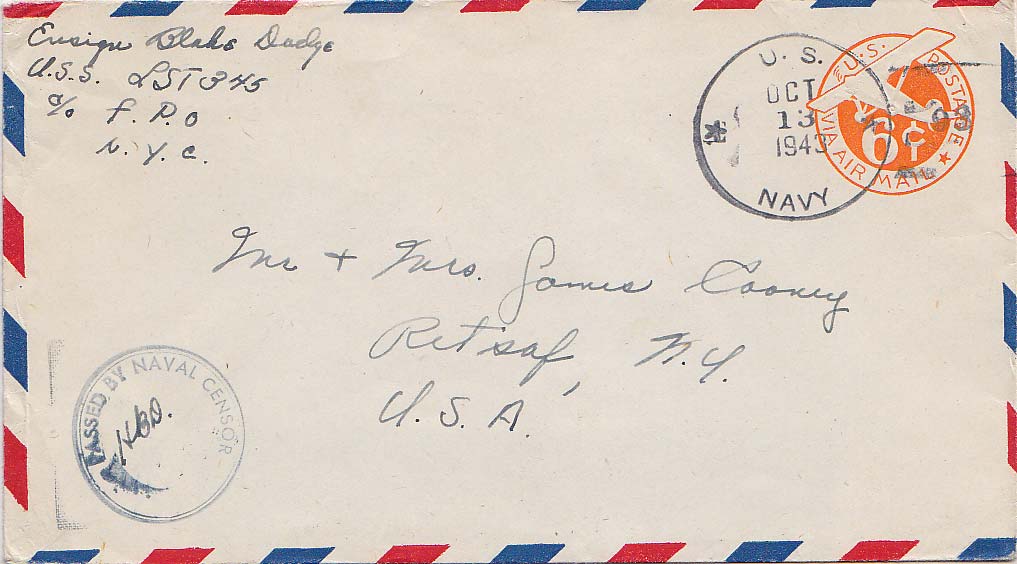 Ensign Blake Dodge
U.S.S. LST 345
c/o F.P.O
N.Y.C.
U. S.
OCT
13
1943
NAVY
U.S. POSTAGE
6¢
VIA AIR MAIL
Mr + Mrs. James Cooney
Retsof, N.Y.
U.S.A.
PASSED BY NAVAL CENSOR
HBD.